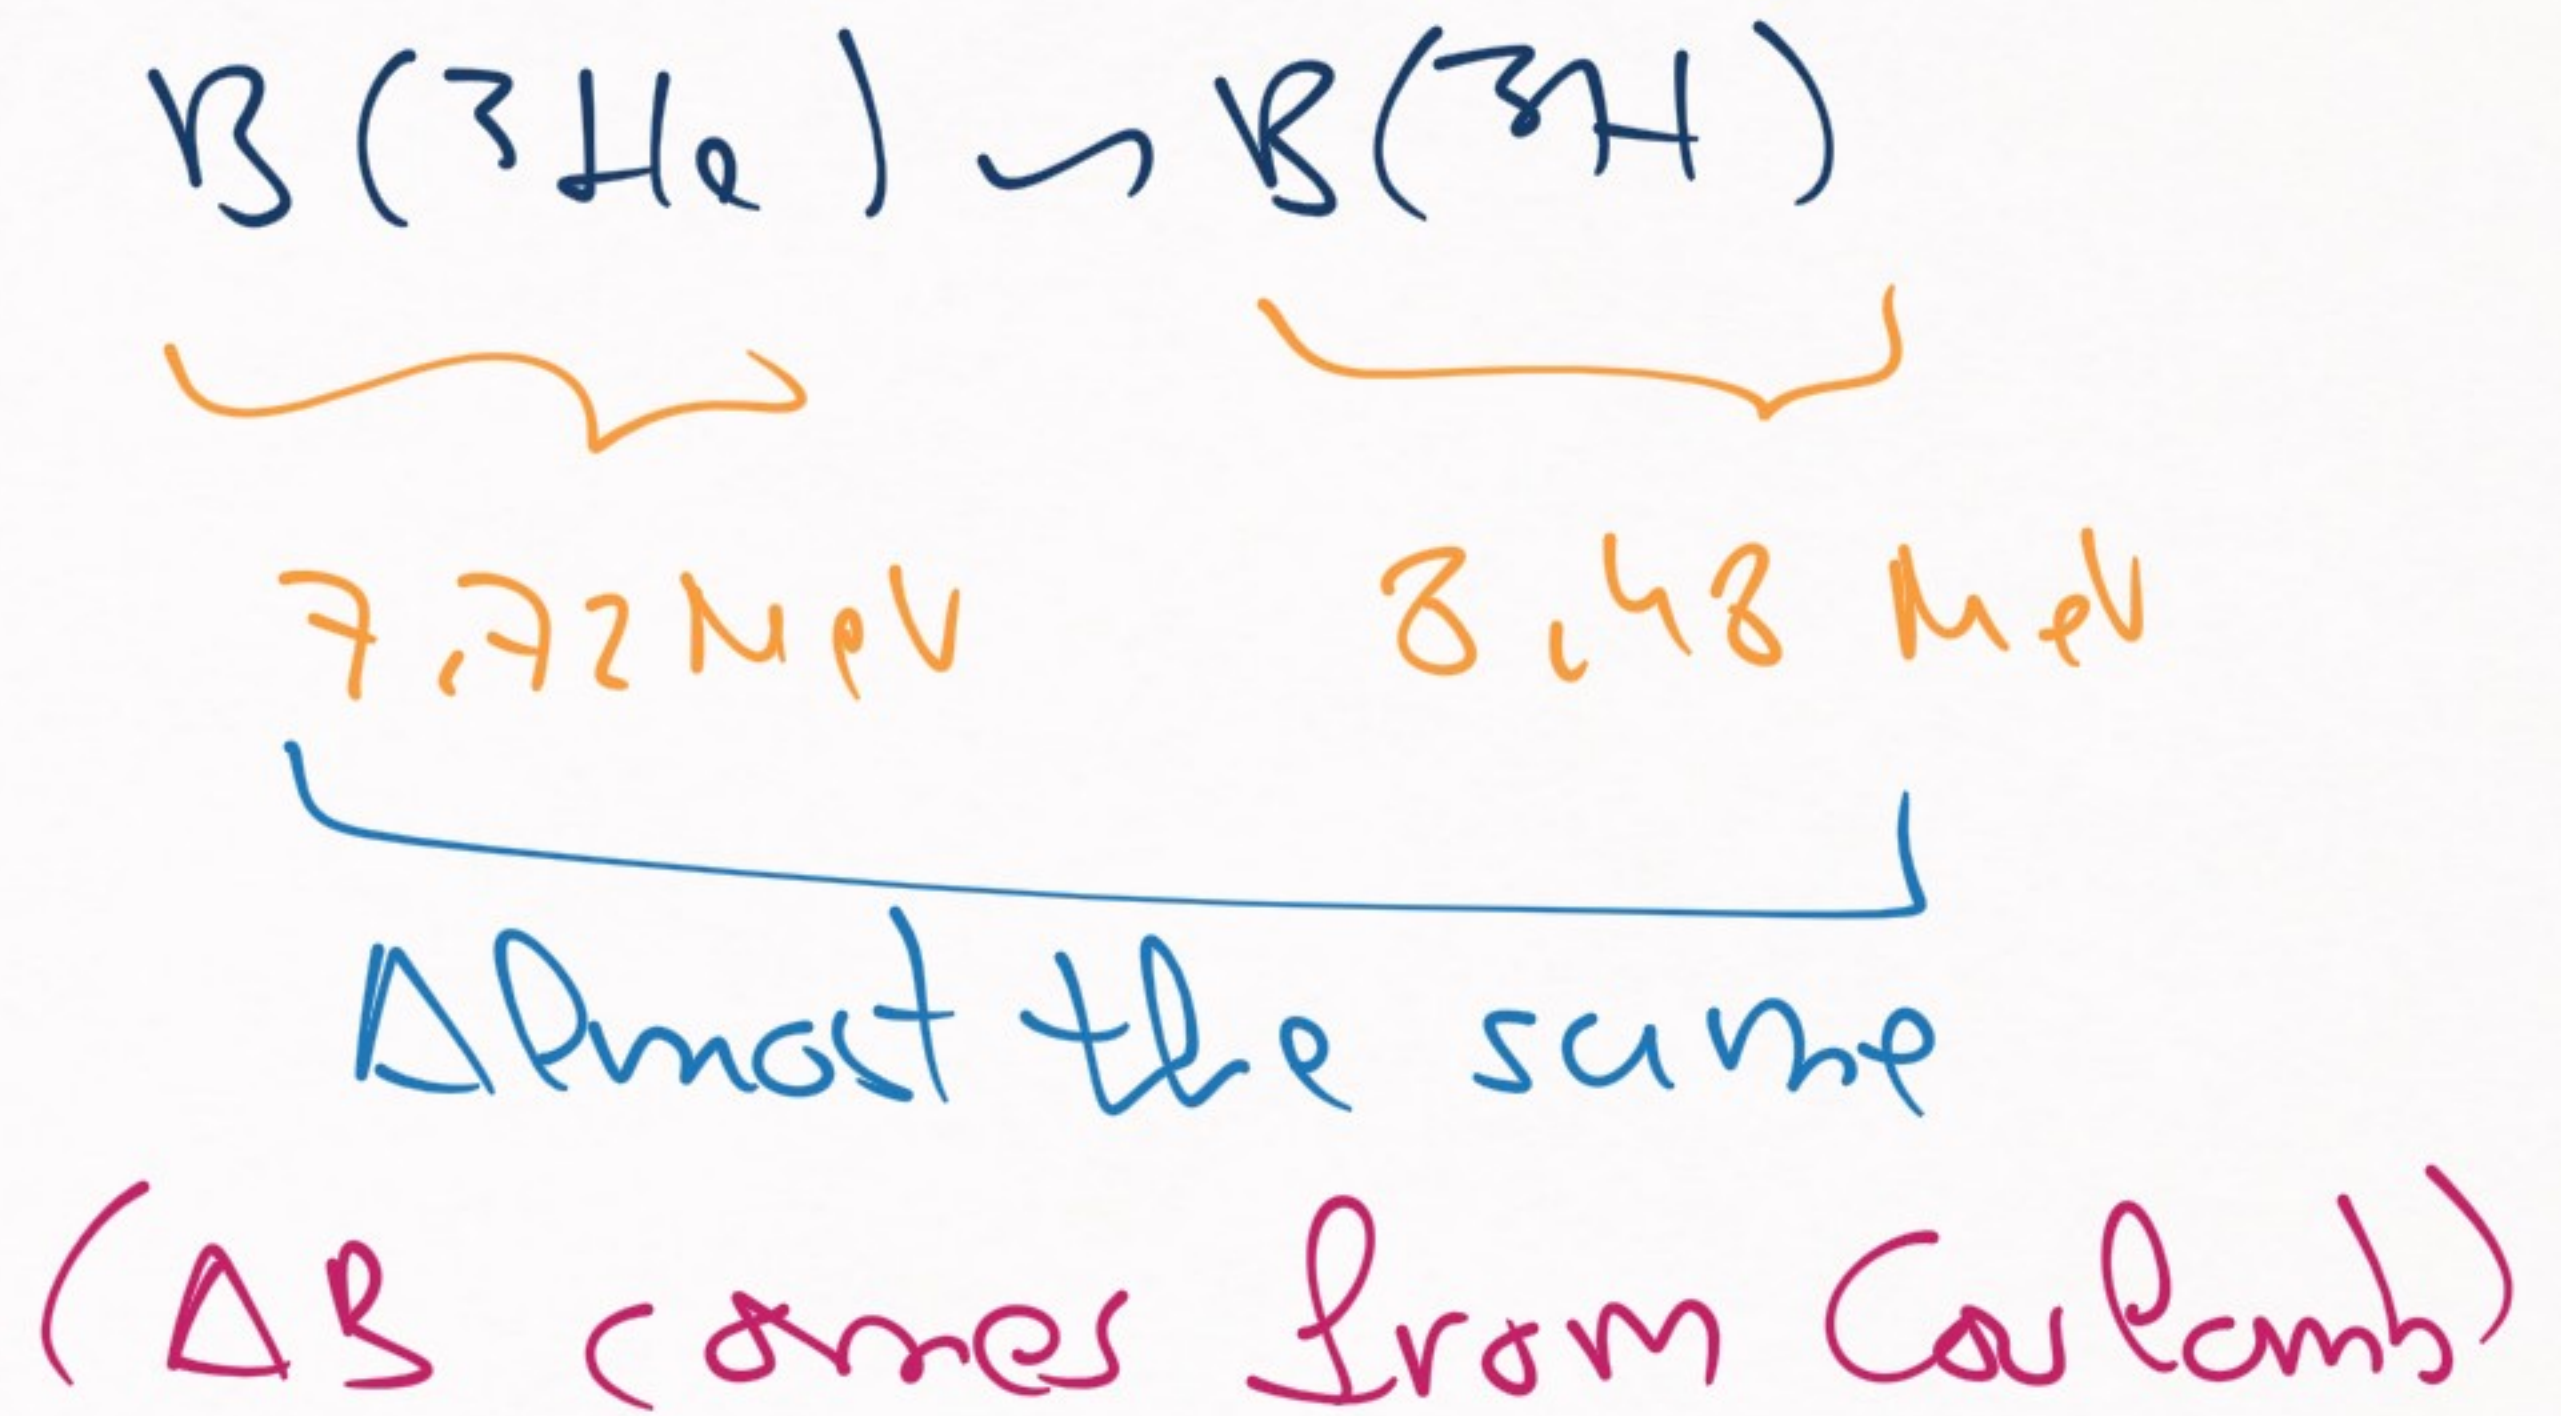 B(³He) ~ B(³H)
7,72 MeV 8,48 MeV
Almost the same
(ΔB comes from Coulomb)